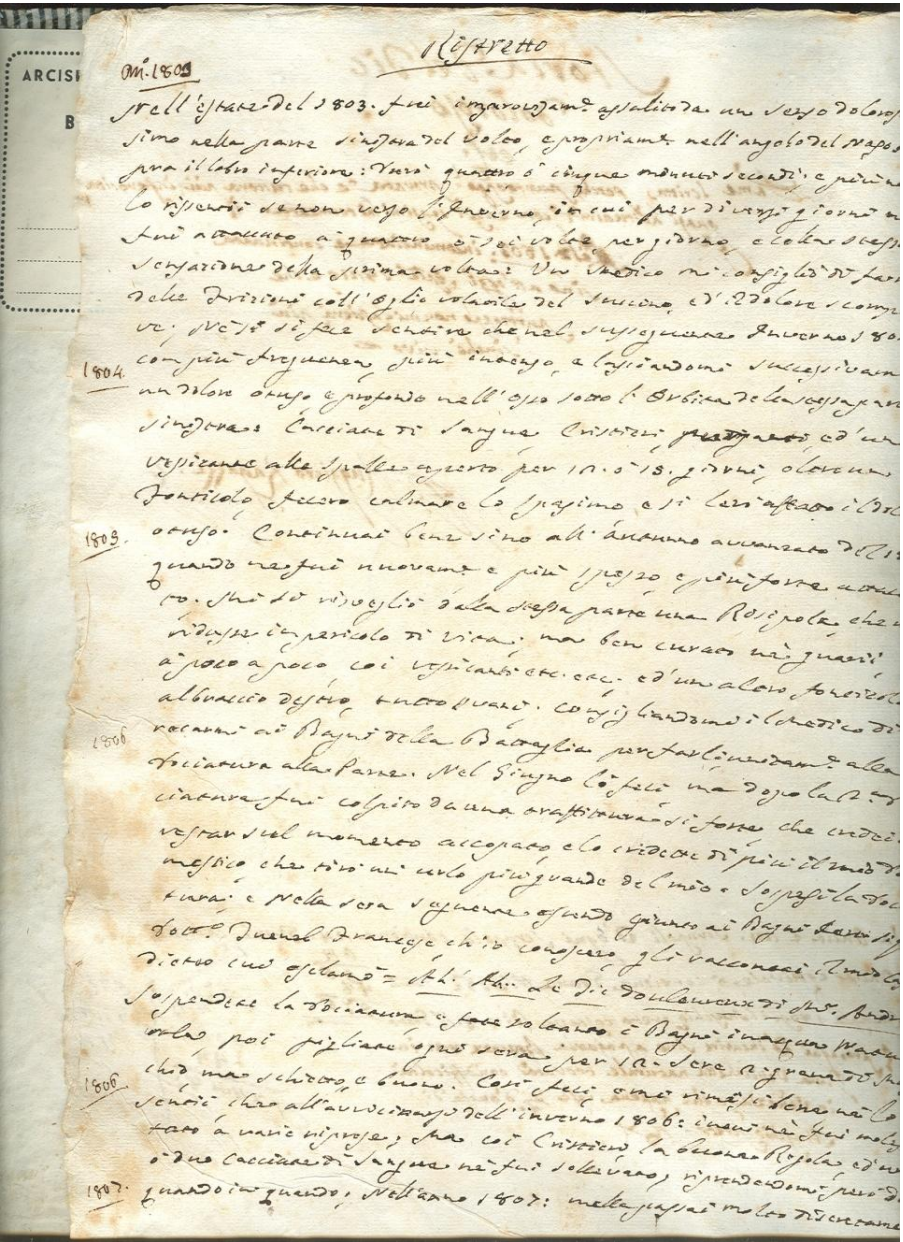 ARCISP
B
Ristretto
An. 1803
Nell'estate del 1803. fui improvisam.e assalito da un senso doloros
simo nella parte sinistra del volto, e propriam.e nell'angolo del naso s
pra il labro inferiore: durò quattro ò cinque minuti secondi; e più no
lo rissentii se non verso l'Inverno, in cui per diversi giorni n
fui attaccato a quattro è sei volte per giorno, e colla stess
sensazione della prima volta: Un Medico mi consigliò di fare
delle frizioni coll'Oglio volatile del Succino, ed il dolore scomp
ve; Nè si fece sentire che nel susseguente Inverno 180
1804.
con più frequenza, più intenso, e lasciandomi successivam
un dolore ottuso e profondo nell'osso sotto l'Orbita della stessa par
sinistra: Cacciate di sangue, Cristieri, ed un
vessicante alle spalle aperto per 12. ò 15. giorni, oltre un
Fonticolo, fecero calmare lo spasimo e si levò affatto il dol
1805.
ottuso. Continuai bene sino all'Autunno avvanzato del 18
quando ne fui nuovam.e e più spesso e più forte attac
to. Mi si risvegliò dalla stessa parte una Rosipola, che m
ridusse in pericolo di vita; ma ben curato nè guarii
à poco a poco coi vessicanti etc. etc. ed un altro fonticolo
al braccio destro, tutto svanì. Consigliandomi il Medico di
1806
recarmi ai Bagni della Battaglia per farli unitam.e alla
dociatura alla Parte. Nel Giugno lò feci, ma dopo la 2.da do
ciatura fui colpito da una trafittura si forte, che credei
restar sul momento accopato, e lo credette di più il mio do
mestico che tirò un urlo più grande del mio. Sospesi la doc
tura; e Nella sera seguente essendo giunto ai Bagni Sig
Dott.e Duenel Francese ch'io conosceva, gli raccontai il mio
dietro cui esclamò = Ah! Ah.. Le Tic douloureux di Mr. Andr
sospendere la dociatura e soltanto i Bagni in acqua
poi pigliare ogni sera per 12. sere 2. grana di
chiò ma schietto, e buono. Così feci, e mi rimisi bene nè lo
1806
sentii che all'avvicinarsi dell'inverno 1806: in cui nè fui moles
tato à varie riprese; Ma coi Cristieri, la buona Regola, ed un
ò due cacciate di sangue nè fui sollevato, riprendendomi però di
1807.
quando in quando; Nell'anno 1807: mella passai molto discretame